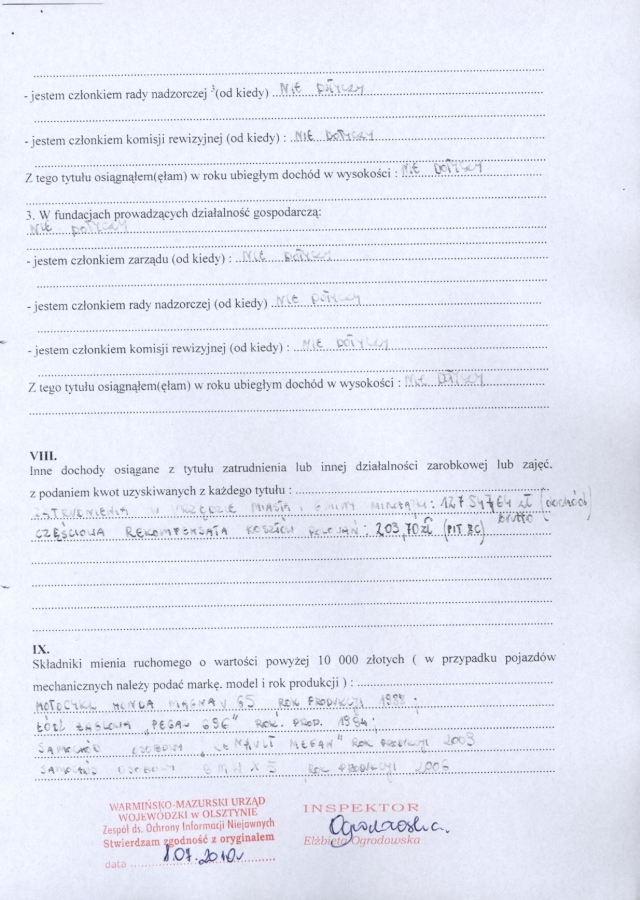 - jestem członkiem rady nadzorczej ³(od kiedy) NIE DOTYCZY
- jestem członkiem komisji rewizyjnej (od kiedy) : NIE DOTYCZY
Z tego tytułu osiągnąłem(ęłam) w roku ubiegłym dochód w wysokości : NIE DOTYCZY
3. W fundacjach prowadzących działalność gospodarczą:
NIE DOTYCZY
- jestem członkiem zarządu (od kiedy) : NIE DOTYCZY
- jestem członkiem rady nadzorczej (od kiedy) NIE DOTYCZY
- jestem członkiem komisji rewizyjnej (od kiedy) : NIE DOTYCZY
Z tego tytułu osiągnąłem(ęłam) w roku ubiegłym dochód w wysokości : NIE DOTYCZY
VIII.
Inne dochody osiągane z tytułu zatrudnienia lub innej działalności zarobkowej lub zajęć.
z podaniem kwot uzyskiwanych z każdego tytułu :
W URZĘDZIE MIASTA I GMINY zł (dochód)
BRUTTO
CZĘŚCIOWA REKOMPENSATA : 203,70 ZŁ (PIT 8C)
IX.
Składniki mienia ruchomego o wartości powyżej 10 000 złotych ( w przypadku pojazdów
mechanicznych należy podać markę. model i rok produkcji ) :
MOTOCYKL HONDA MAGNA V 65 ROK PRODUKCJI
ŁÓDŹ ŻAGLOWA „PEGAZ 696" ROK. PROD. 1984;
SAMOCHÓD OSOBOWY „RENAULT MEGAN" ROK PRODUKCJI 2003
SAMOCHÓD OSOBOWY BMW X5 ROK PRODUKCJI
WARMIŃSKO-MAZURSKI URZĄD
WOJEWÓDZKI w OLSZTYNIE
Zespół ds. Ochrony Informacji Niejawnych
Stwierdzam zgodność z oryginałem
data 8.07.2010r
INSPEKTOR
Ogrodowska.
Elżbieta Ogrodowska